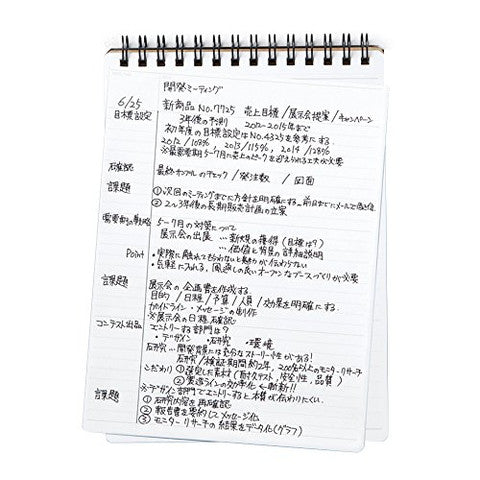 開発ミーティング
6/25 新商品 No.7725 売上目標/展示会提案/キャンペーン
目標設定 3年後の予測 2012~2015年まで
初年度の目標設定はNo.4325を参考にする。
2012/108% 2013/115% 2014/128%
※最重要期 5~7月に売上のピークを迎えられる工夫が必要
再確認 最終サンプルのチェック/発注数/図面
課題 ①次回のミーティングまでに方針を明確にする。前日までにメールで
②2~3年後の長期販売計画の立案
需要期の戦略 5~7月の対策について
展示会の出展 …新規の獲得(目標は?)
…価値と背景の詳細説明
Point ・実際に触れてもらわないと魅力が伝わらない
・気軽に入れる、風通しの良いオープンなブースづくりが必要
課題 展示会の企画書を作成する。
目的/日程/予算/人員/効果を明確にする。
ガイドライン・メッセージの制作
※展示会の日程確認
コンテスト出品 エントリーする部門は?
・デザイン ・研究 ・環境
研究…開発背景には充分なストーリー性がある!
研究/検証期間約2年、200名以上のモニターリサーチ
こだわり ①選定した素材(耐久テスト、安全性、品質)
②製造ラインの効率化 ←斬新!!
※デザイン部門でエントリーすると本質が伝わりにくい。
課題 ①研究内容を再確認
②報告書を要約してメッセージ化
③モニターリサーチの結果をデータ化(グラフ)